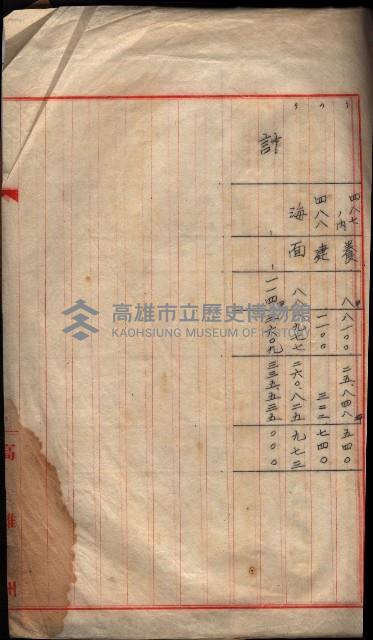 〃 四八七ノ内 養 八八一〇〇 二五、八四八 五四〇
〃 四八八 建 一一〇〇 三二二 七四〇
〃 海面 八八九七七 二六〇、八二五 九七三
計 、 、 一一四三六〇九 三三五、五三五 〇〇〇
高雄州
高雄市立歷史博物館
KAOHSIUNG MUSEUM OF HISTORY